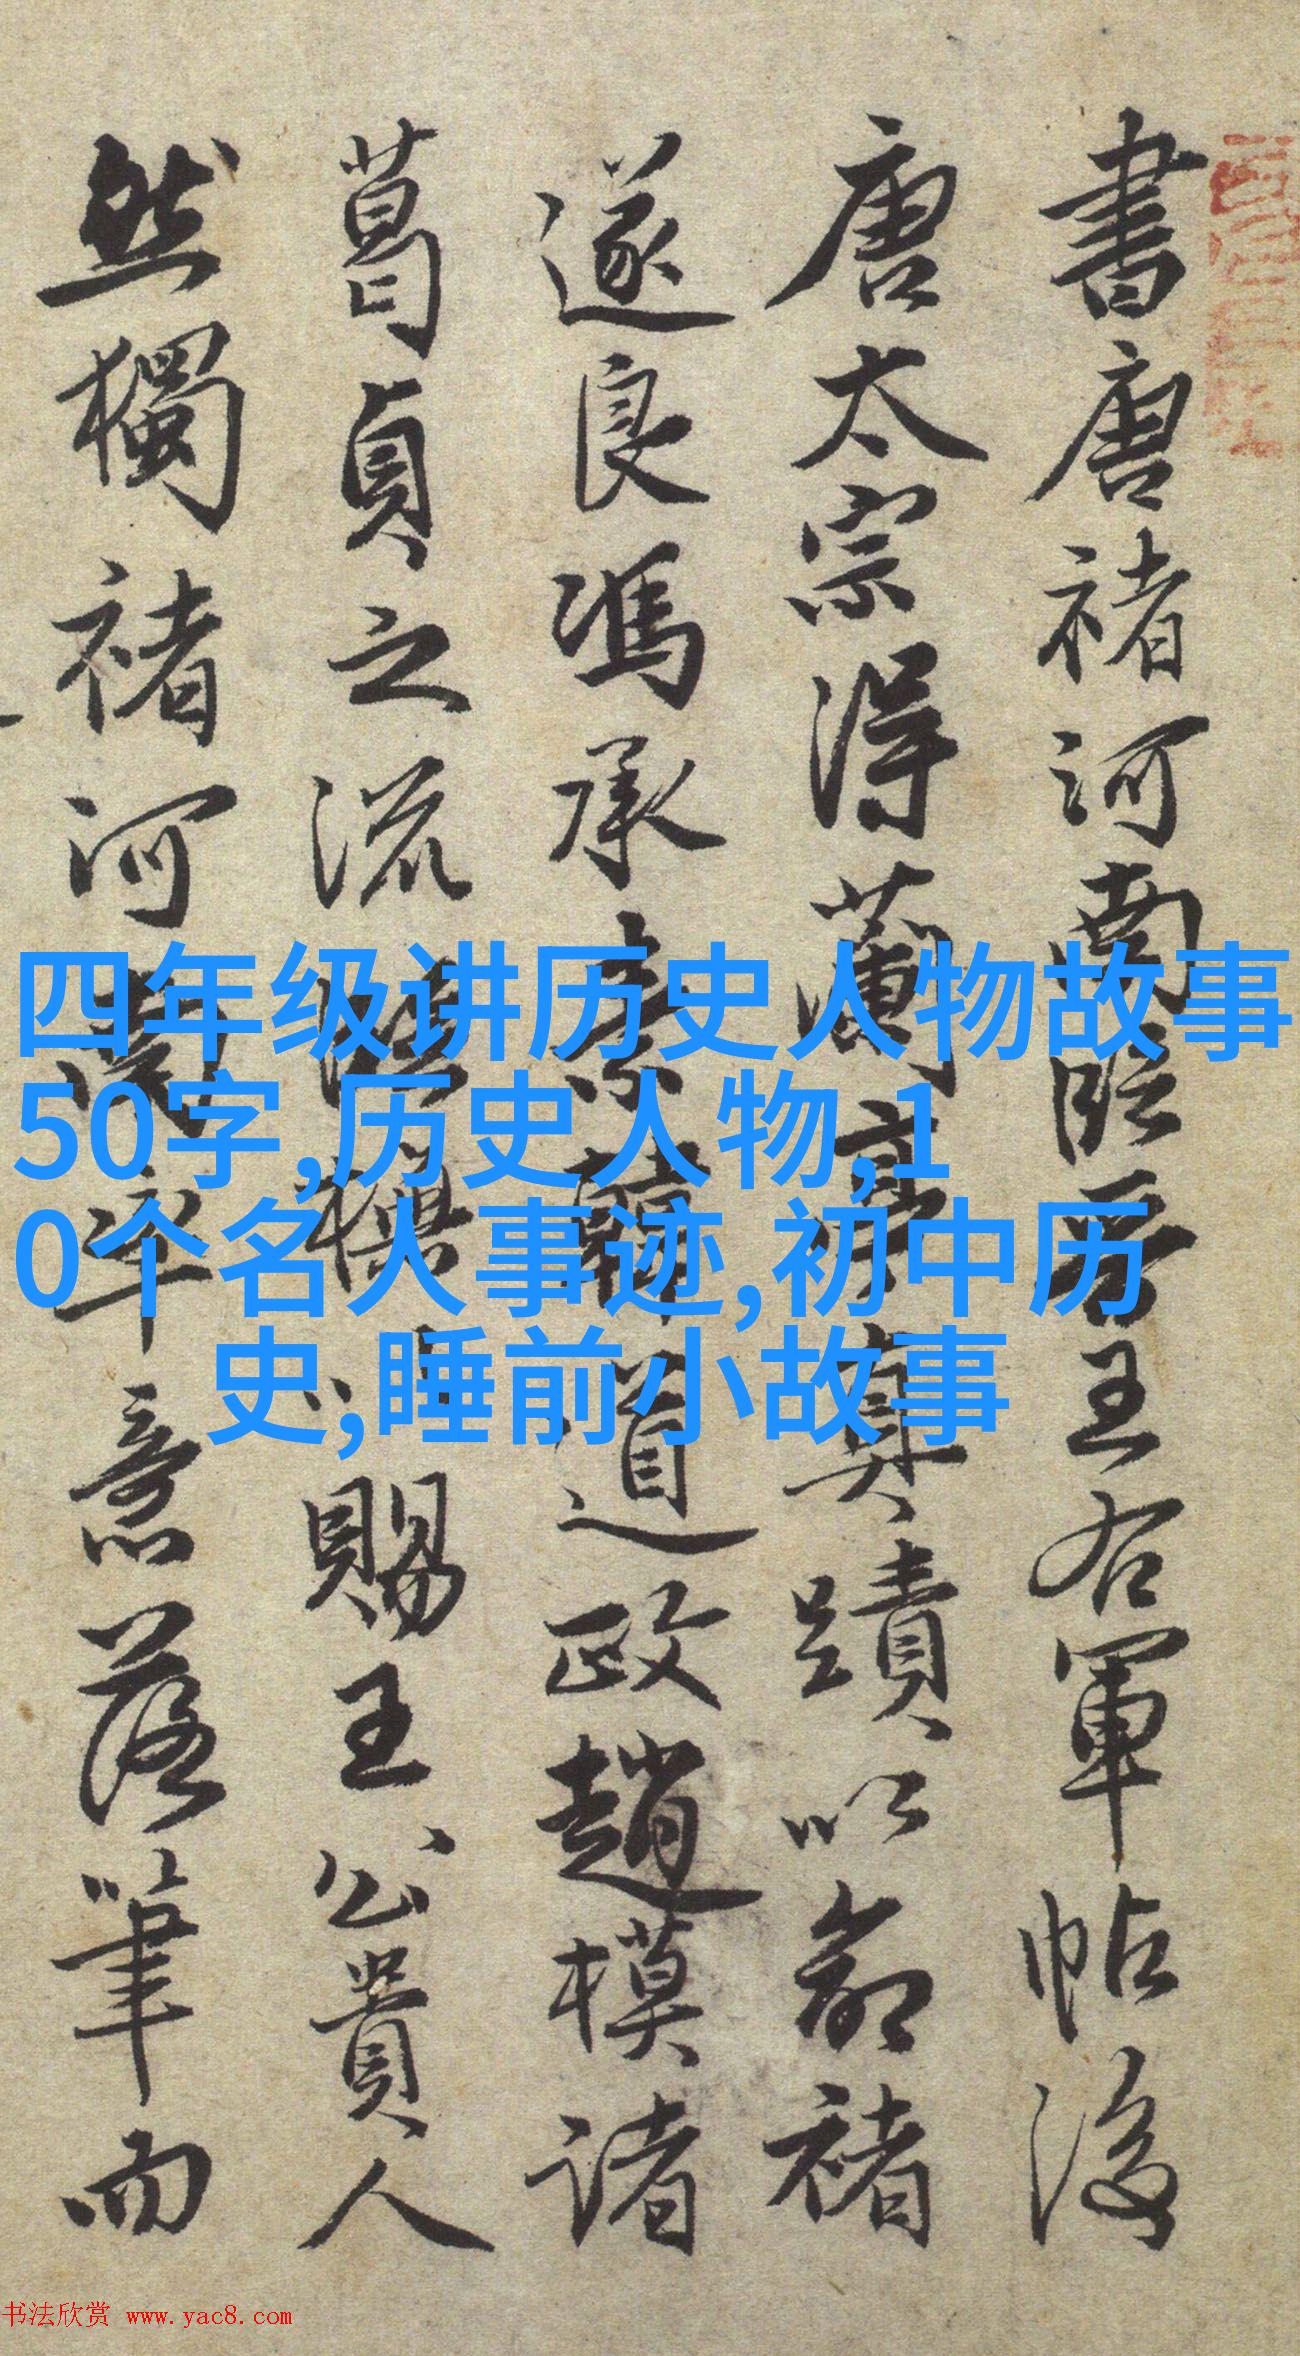 書唐褚河南臨晉王右軍帖後
唐太宗得蘭亭真蹟以命褚
遂良馮承素韓道政趙模諸
葛貞之流
賜王公貴人
然獨褚河南率意落筆而
四年级讲历史人物故事
50字,历史人物,1
0个名人事迹,初中历
史,睡前小故事
书法欣赏 www.yac8.com